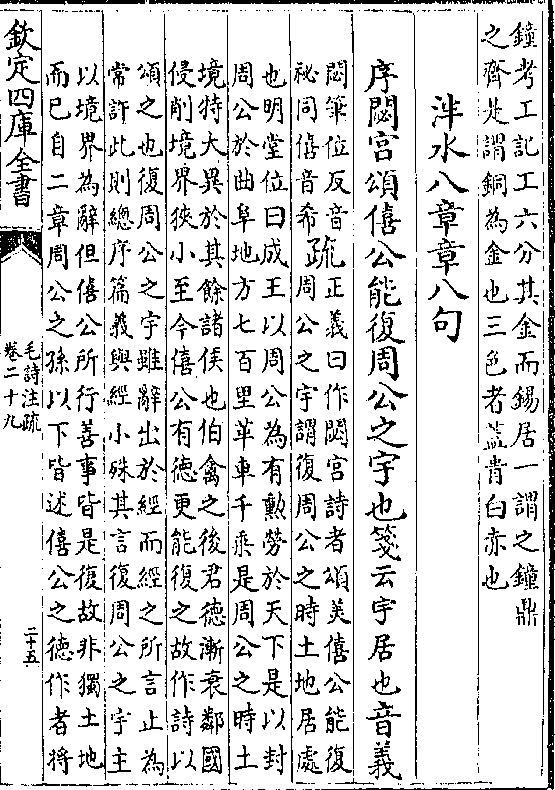 鐘考工記工六分其金而錫居一謂之鐘鼎
之齊是謂銅為金也三色者蓋青白赤也
泮水八章章八句
序閟宮頌僖公能復周公之宇也箋云宇居也音義
閟筆位反音
祕同僖音希
疏
正義曰作閟宮詩者頌美僖公能復
周公之宇謂復周公之時土地居處
也明堂位曰成王以周公為有勲勞於天下是以封
周公於曲阜地方七百里革車千乘是周公之時土
境特大異於其餘諸侯也伯禽之後君德漸衰鄰國
侵削境界狹小至今僖公有德更能復之故作詩以
頌之也復周公之宇雖辭出於經而經之所言止為
常許此則總序篇義與經小殊其言復周公之宇主
以境界為辭但僖公所行善事皆是復故非獨土地
而已自二章周公之孫以下皆述僖公之德作者將
欽定四庫全書
毛詩注疏
卷二十九
二十五